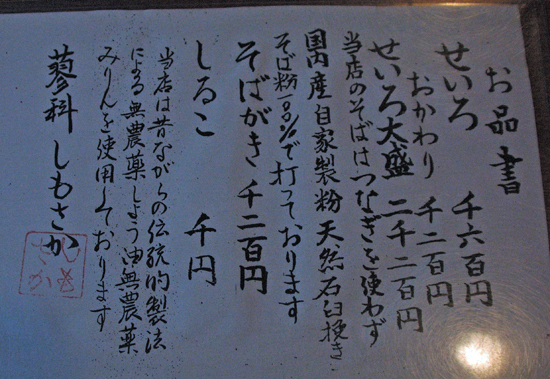 お品書
せいろ 千六百円
おかわり 千二百円
せいろ大盛 二千二百円
当店のそばはつなぎを使わず
国内産自家製粉天然石臼挽き
そば粉100%で打っております
そばがき 千二百円
しるこ 千円
当店は昔ながらの伝統的製法
による無農薬しょう油無農薬
みりんを使用しております
蓼科しもさか